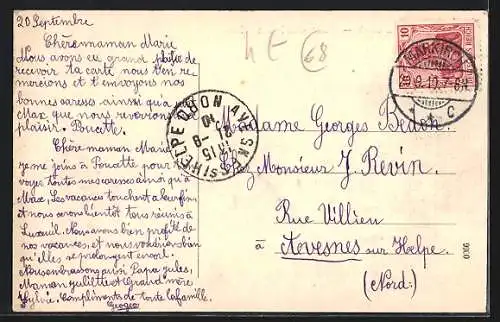 20 Septembre
Chère maman Marie
Nous avons eu grand plaisir de
recevoir ta carte nous t'en re-
mercions et t'envoyons nos
bonnes caresses ainsi qu'à
Max que nous revoyons
plaisir. Poucette.
Chère maman Marie
je me joins à Poucette pour
voyer toutes mes caresses ainsi qu'à
Max. Les vacances touchent à leur fin
et nous serons bientôt tous réunis à
Luxeuil. Nous avons bien profité de
nos vacances, et nous voudrions bien
qu'elles se prolongent encore.
Nous embrassons aussi Papa Jules,
Maman Juliette et Grand'mère
Sylvie. Compliments de toute la famille.
Georges
68
10
REICH
MARKIRCH
9.10.7-8N
C
AVESNES-SUR-HELPE NORD
8-15
10
Madame Georges
Chez Monsieur J. Revin.
Rue Villien
à Avesnes sur Helpe
(Nord)